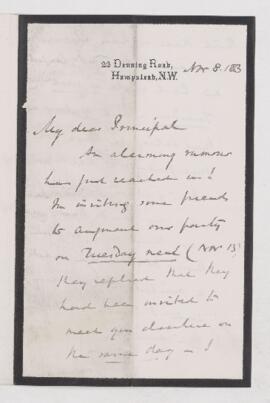 22 Denning Road,
Hampstead, N.W.
Nov 8. 1883
My dear Principal
An alarming rumour
has just reached us!
In inviting some friends
to augment our party
on Tuesday next (Nov 13)
they replied that they
had been invited to
meet you elsewhere on
the same day!